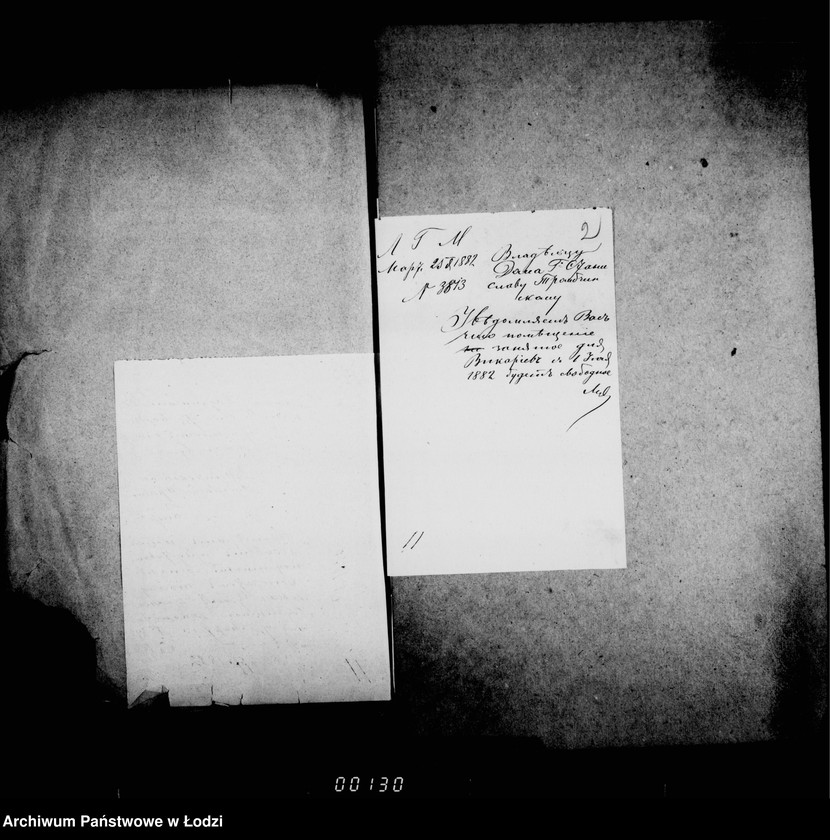 2
Л Г М
Март. 25 д. 1882
№ 3873
Владѣльцу
Дома Г Стани
славу Трамбчин
скому
Увѣдомляемъ Вас
что помѣщение
занятое для
Викаріевъ съ 1 Iюля
1882 будетъ свободное
11
00130
Archiwum Państwowe w Łodzi